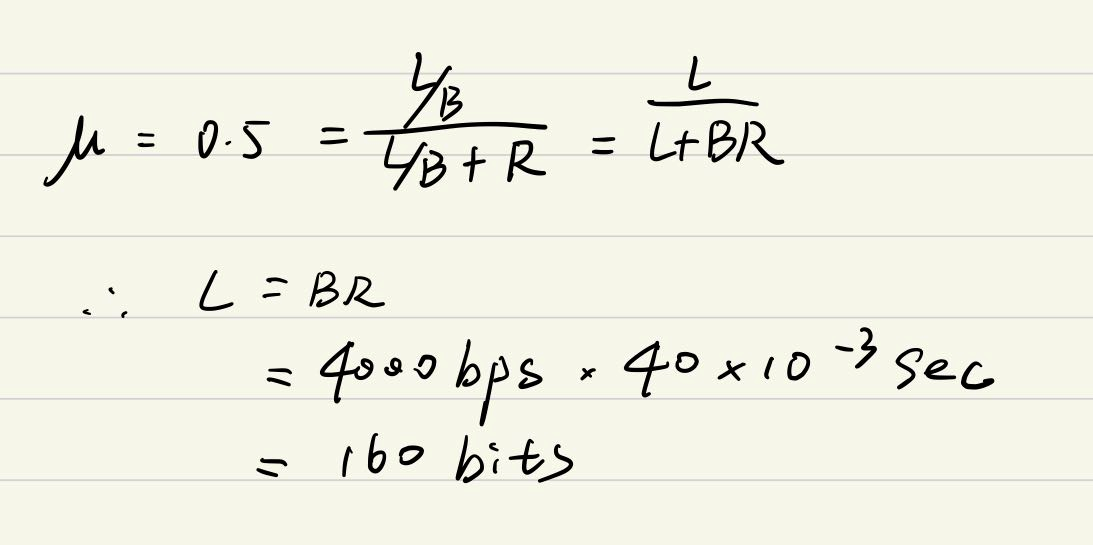 μ = 0.5 = (L/B)/(L/B + R) = L/(L+BR)
∴ L = BR
= 4000 bps × 40 × 10⁻³ sec
= 160 bits